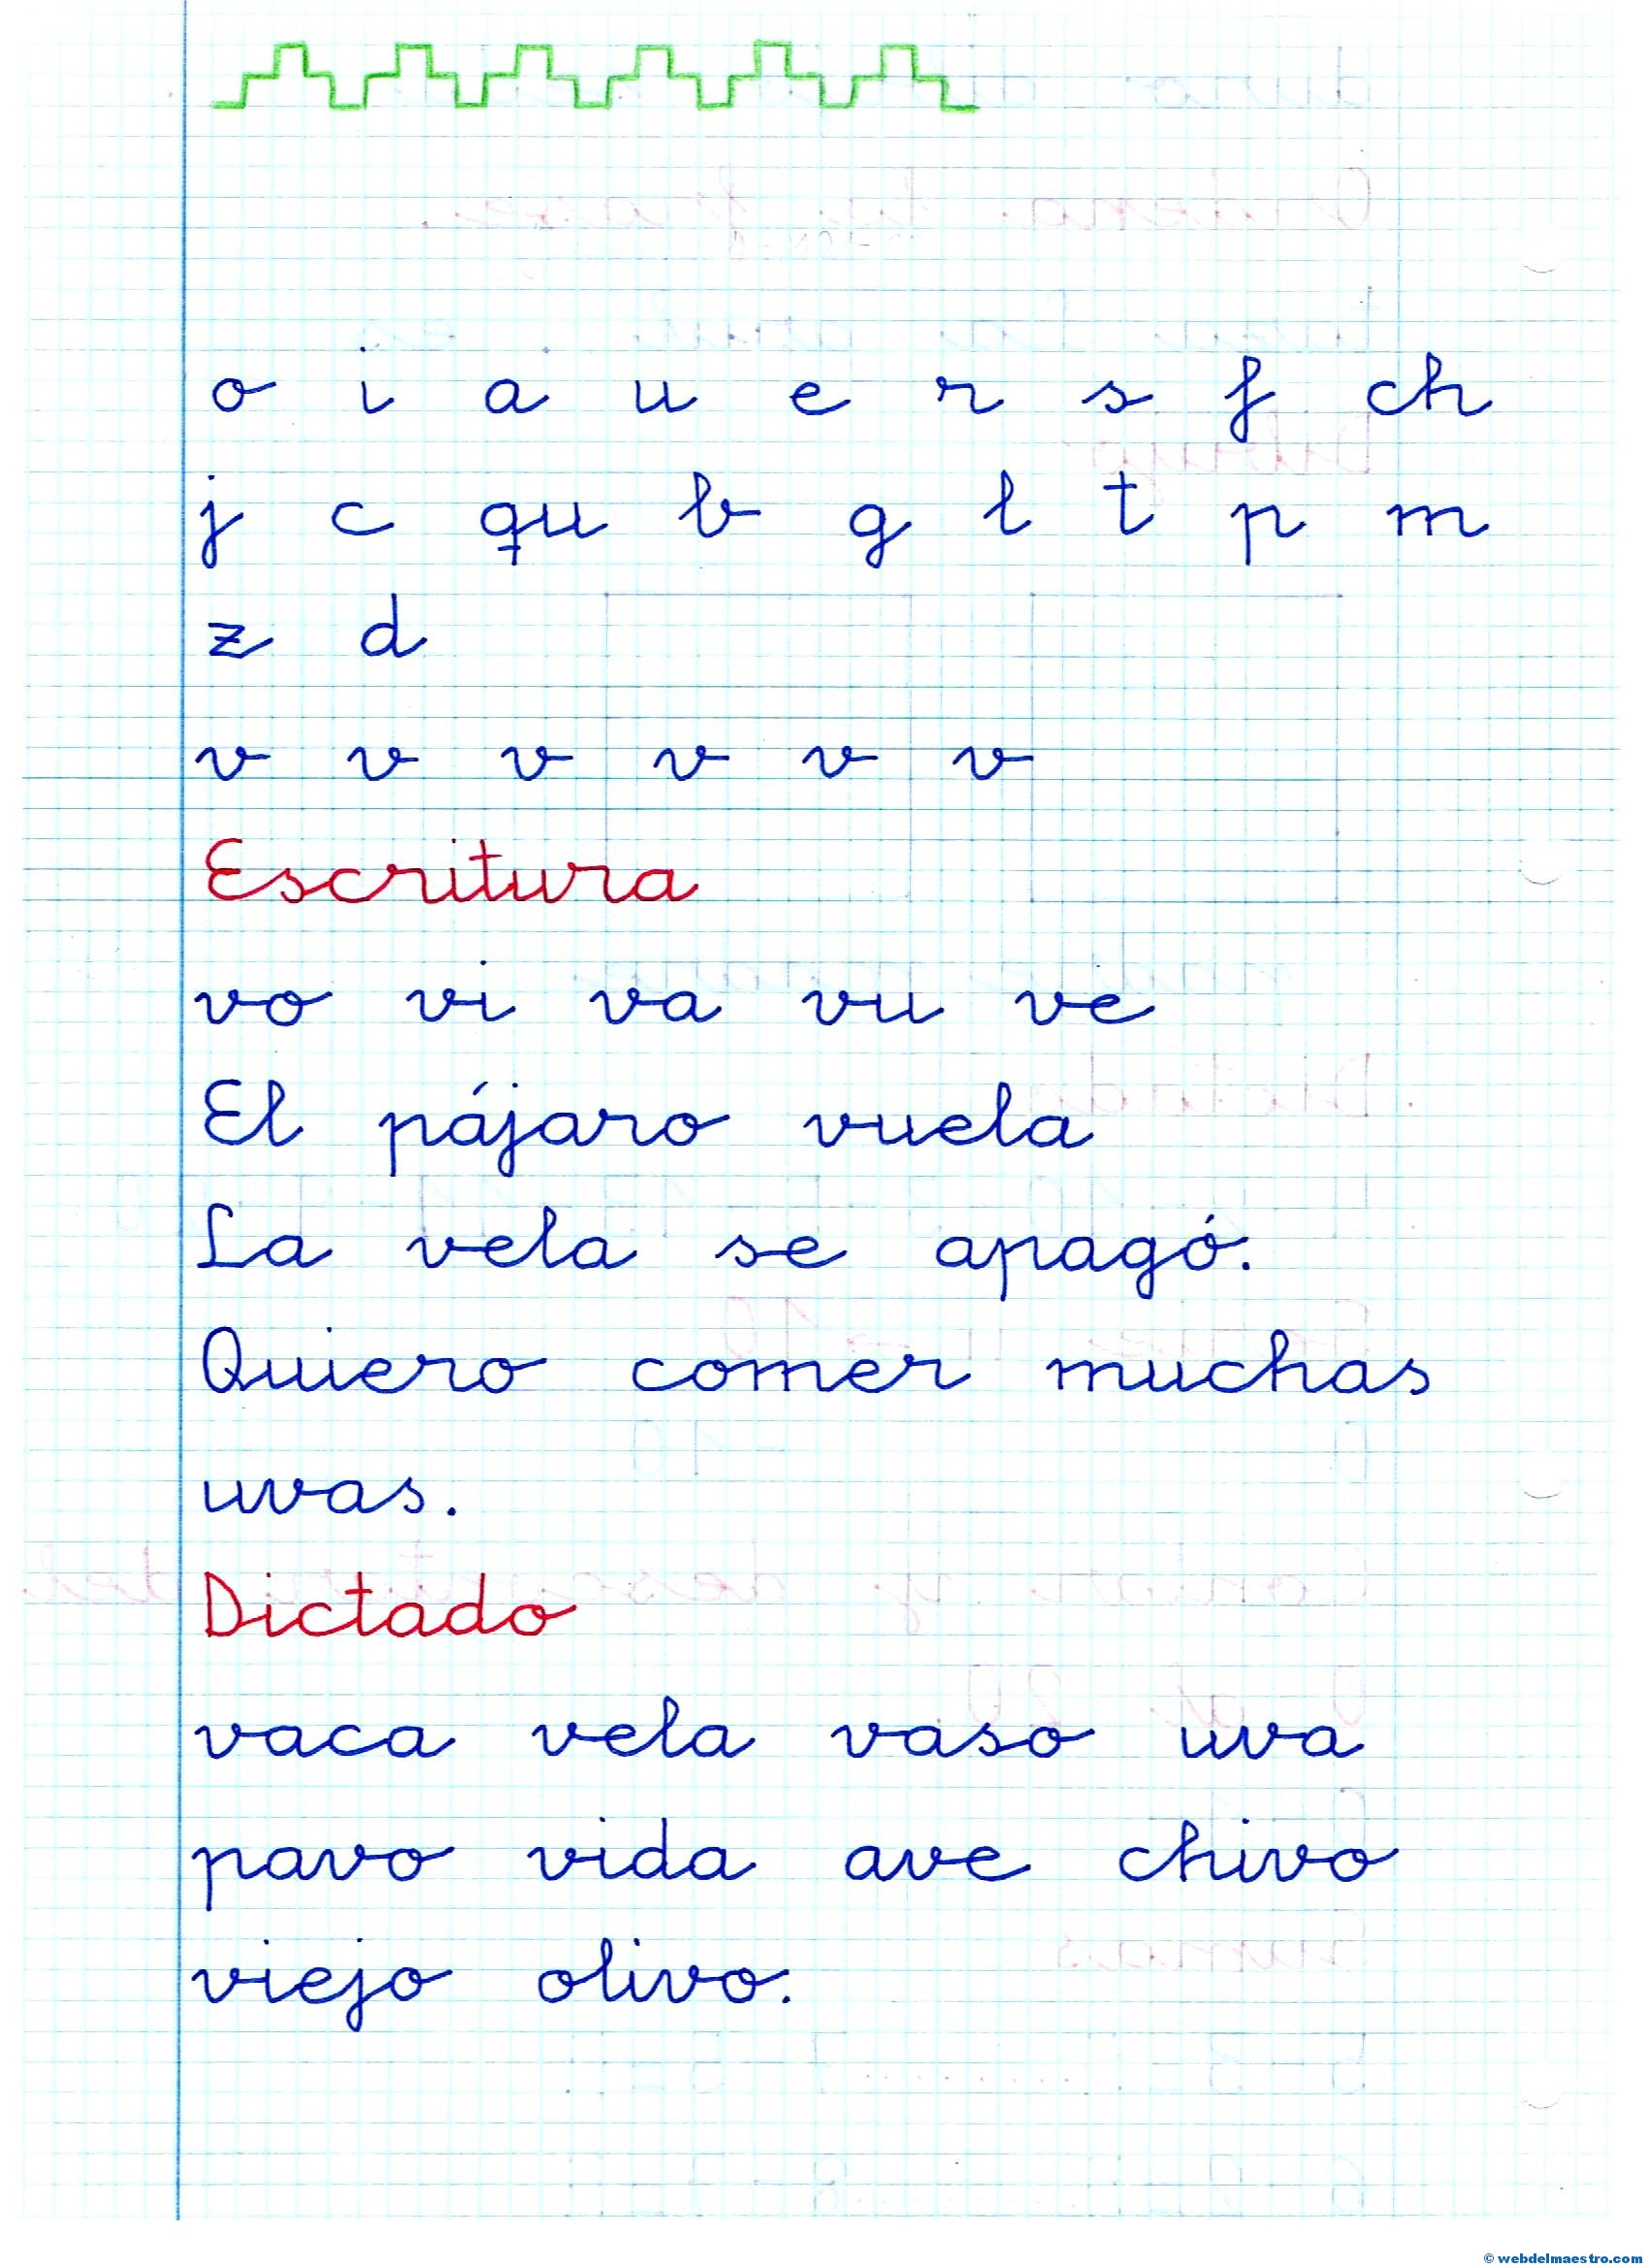 o i a u e r s f ch
j c qu b g l t p m
z d
v v v v v v
Escritura
vo vi va vu ve
El pájaro vuela
La vela se apagó.
Quiero comer muchas
uvas.
Dictado
vaca vela vaso uva
pavo vida ave chivo
viejo olivo.
© webdelmaestro.com